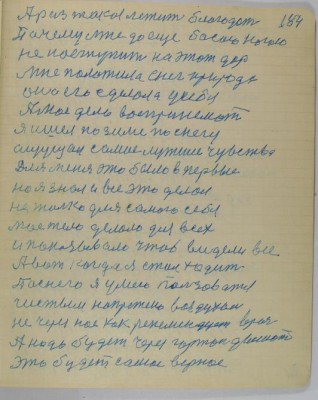 А раз такая летит благодать 184
Почему мне до еще босою ногою
не наступить на этот дар
мне положила снег природа
она его сделала у себя
А мое дело воспринимать
я ишел по зиме по снегу
ощущал самое лутшее чувство
Для меня это было впервые
но я знал и все это делал
не только для самого себя
мое тело делало для всех
и показывало чтоб видели все
А вот когда я стал ходить
По снегу я умею пользоватся
чистым напротено воздухом
не через нос как рекомендует врач
А надо будет через гортань дышать
это будет самое верное